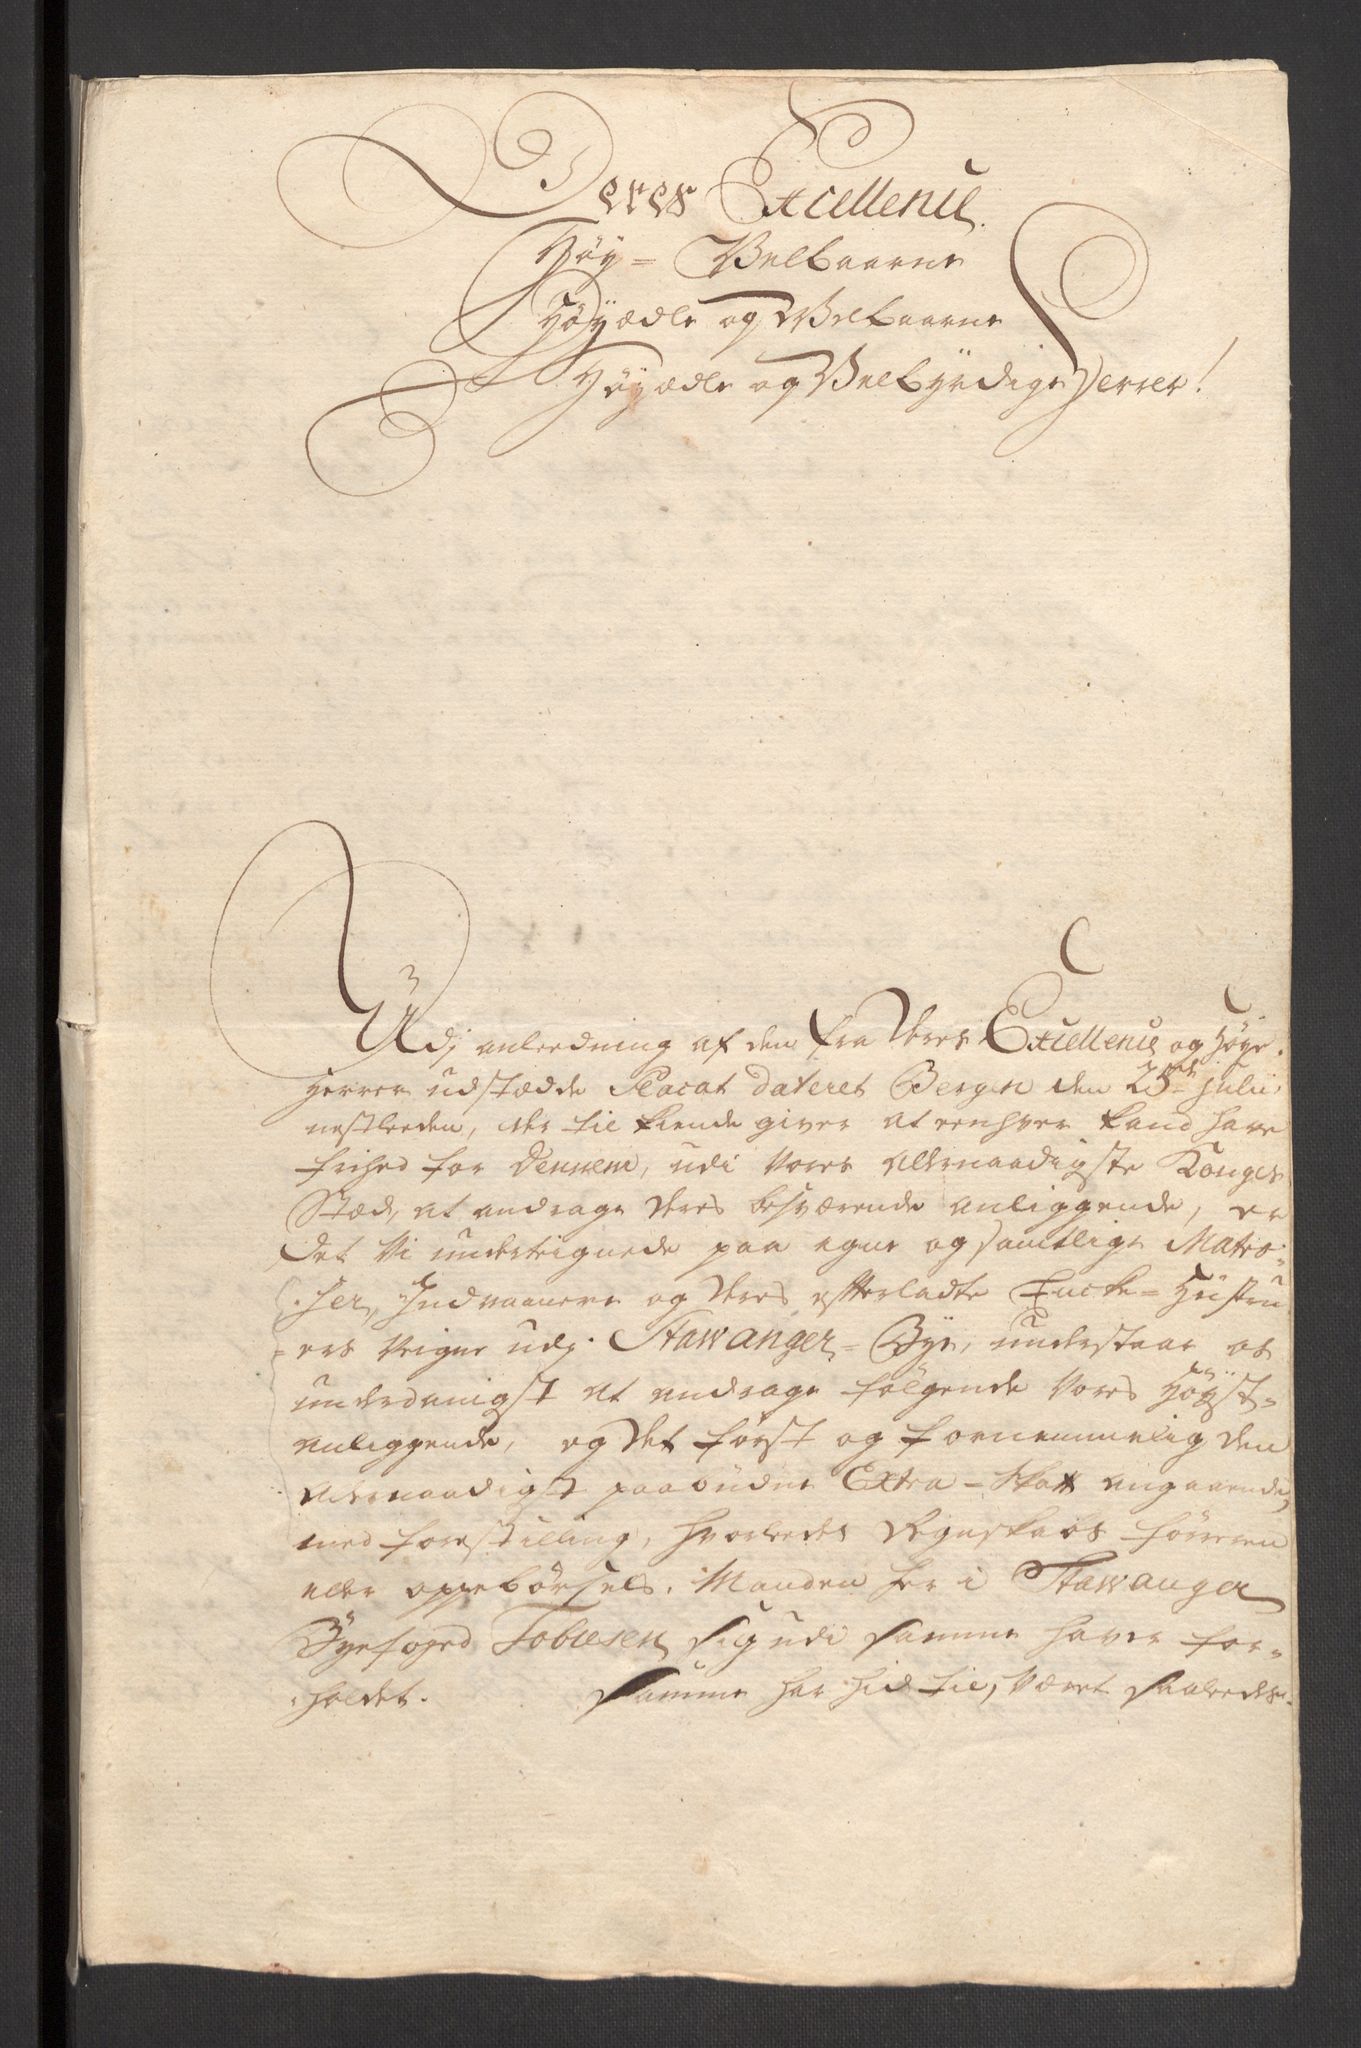 Deres Excellence
Høy = Velbaarne
Høyædle og Velbaarne
Høyædle og Velbyrdige Herrer!
Udj anleedning af den fra Deres Excellence og Høye
Herrer udstædde Placat dateret Bergen den 25de Julii
nestleeden, der til kiende giver at eenhver kand have
frihed for Dennem, udi Vores allernaadigste Konges
Stæd, at andrage deres besværende anliggende, er
det Vi underteignede paa egne og samtlige Matro-
ser, Indvaanere og deres efterladte Encke = Hustru
ers Veigne udj Stawanger = Bye, understaar os
underdanigst at andrage følgende Vores Høyst-
anliggende, og det først og fornemmelig den
allernaadigst paabudne Extra = Skatt angaaende,
med forestilling, hvorledes Regnskabs føreren
eller oppebørsels. Manden her i Stawanger
Byefoged Tobiesen sig udi samme haver for-
holdet. Samme har hid til, Været saaledes.